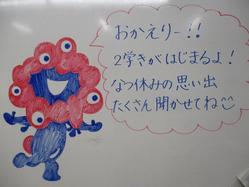 おかえりー!!
2学きがはじまるよ!
なつ休みの思い出
たくさん聞かせてね